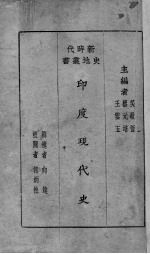 主編者
吳敬恆
蔡元培
王雲五
新時代
史地叢書
印度現代史
者 向達
校閱者 何炳松